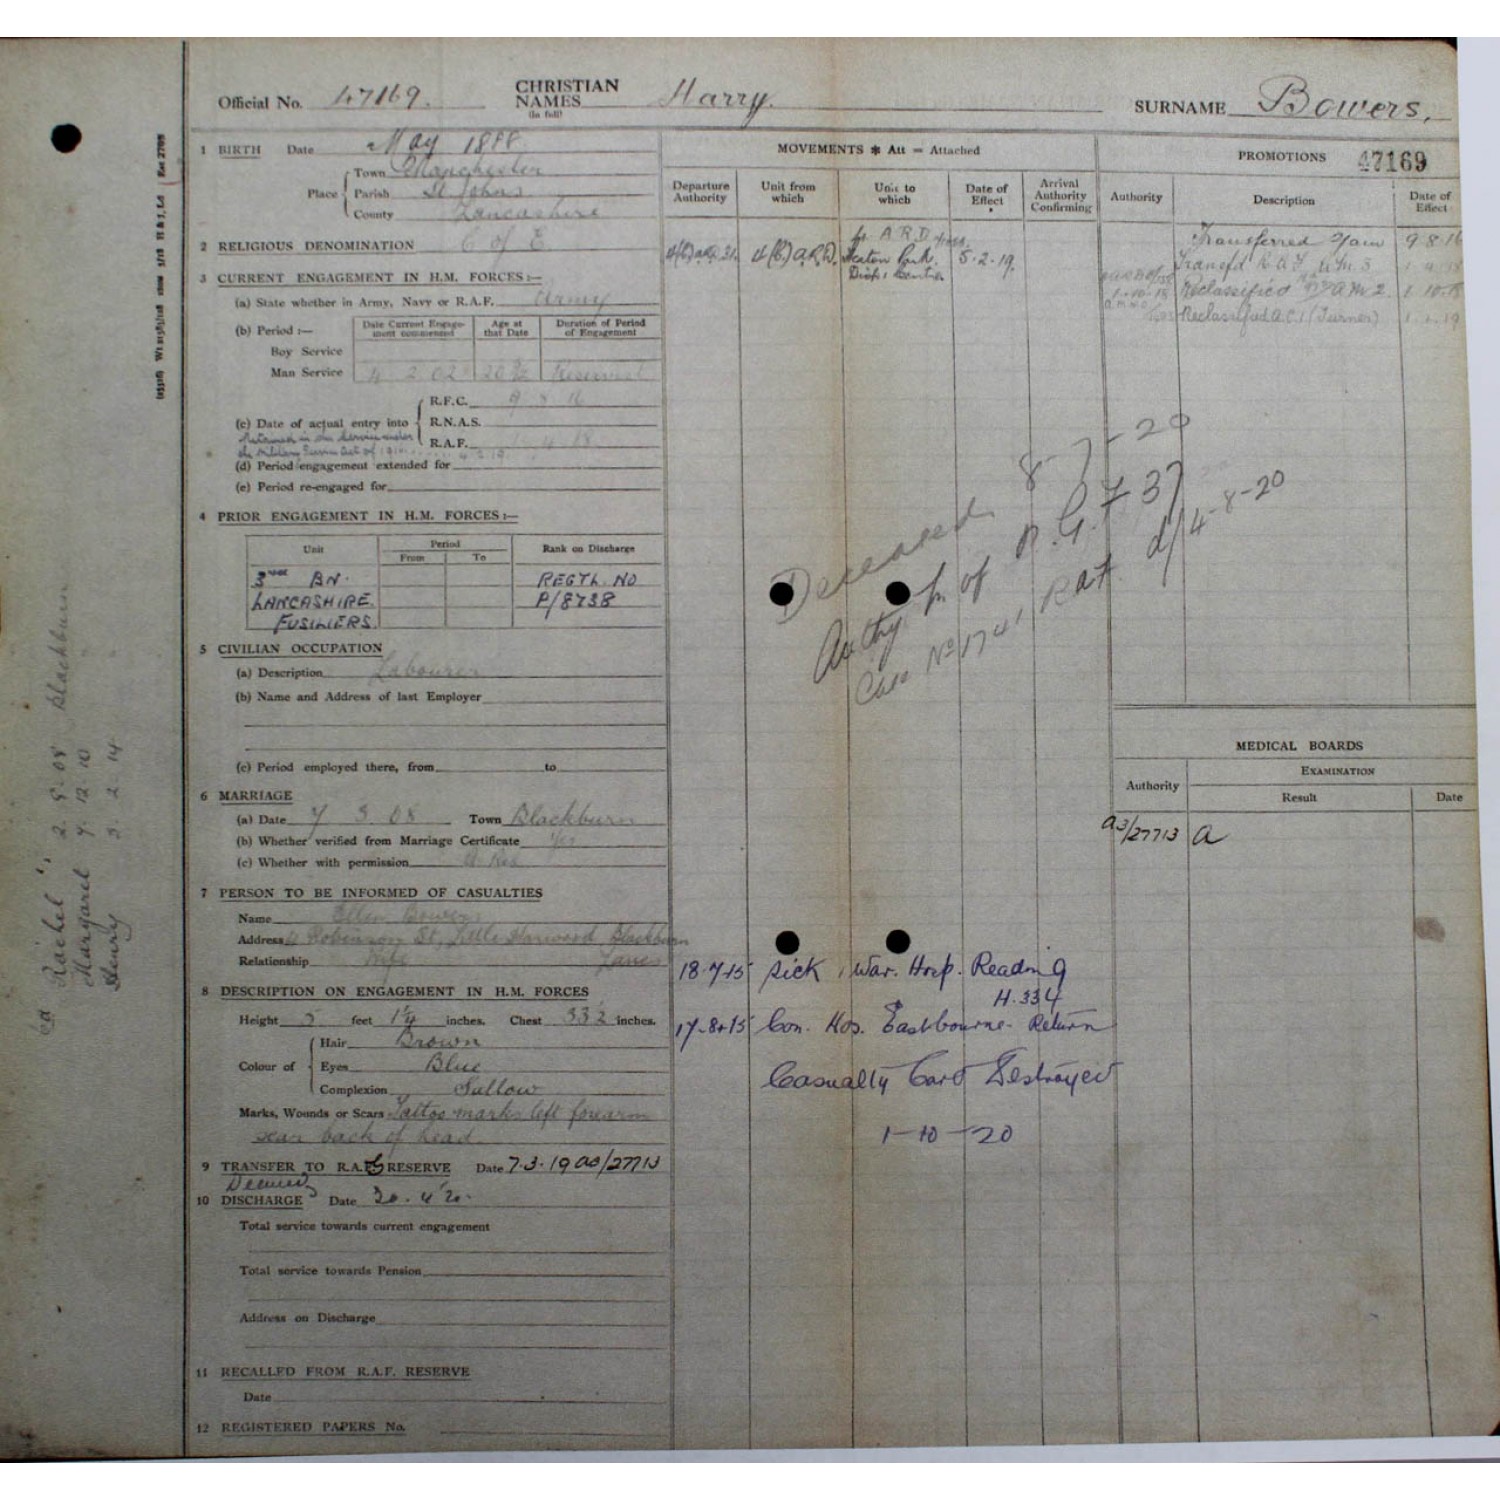 Official No. 47169. CHRISTIAN NAMES (in full) Harry. SURNAME Bowers.
1 BIRTH Date May 1888
Place Town Manchester
Parish St Johns
County Lancashire
2 RELIGIOUS DENOMINATION C of E
3 CURRENT ENGAGEMENT IN H.M. FORCES:—
(a) State whether in Army, Navy or R.A.F. Army
(b) Period :—
Date Current Engagement commenced Age at that Date Duration of Period of Engagement
Boy Service
Man Service
(c) Date of actual entry into
R.F.C. 9 8 16
R.N.A.S.
R.A.F. 1 4 18
(d) Period engagement extended for
(e) Period re-engaged for
4 PRIOR ENGAGEMENT IN H.M. FORCES:—
Unit Period Rank on Discharge
From To
BN. REGTL. NO
LANCASHIRE. P/8738
FUSILIERS.
5 CIVILIAN OCCUPATION
(a) Description Labourer
(b) Name and Address of last Employer
(c) Period employed there, from to
6 MARRIAGE
(a) Date 7 3 08 Town Blackburn
(b) Whether verified from Marriage Certificate Yes
(c) Whether with permission
7 PERSON TO BE INFORMED OF CASUALTIES
Name Ellen Bowers
Address Robinson St, Little Harwood, Blackburn
Relationship Wife Lancs
8 DESCRIPTION ON ENGAGEMENT IN H.M. FORCES
Height 5 feet 1¼ inches. Chest 33½ inches.
Colour of
Hair Brown
Eyes Blue
Complexion Sallow
Marks, Wounds or Scars Tattoo marks left forearm
scar back of head
9 TRANSFER TO R.A.F. RESERVE Date 7.3.19 a3/27713
Deemed
10 DISCHARGE Date 30.4.20.
Total service towards current engagement
Total service towards Pension
Address on Discharge
11 RECALLED FROM R.A.F. RESERVE
Date
12 REGISTERED PAPERS No.
MOVEMENTS * Att = Attached
Departure Authority Unit from which Unit to which Date of Effect Arrival Authority Confirming
A.R.D.
Heaton Park. 5.2.19.
Deceased 8-7-20
Case No 1741
d/4-8-20
18.7.15 Sick War. Hosp. Reading
H.334
17-8-15 Con. Hos. Eastbourne. Return
Casualty Card Destroyed
1-10-20
PROMOTIONS 47169
Authority Description Date of Effect
Transferred 2/am 9.8.16
Transfd R.A.F. a.m.3
Reclassified a.m 2. 1.10.18
Reclassified A.C.1 (Turner) 1.1.19
MEDICAL BOARDS
Authority EXAMINATION
Result Date
a3/27713 A
Rachel 2.9.08 Blackburn
Margaret 7.12.10
Henry 3.2.14